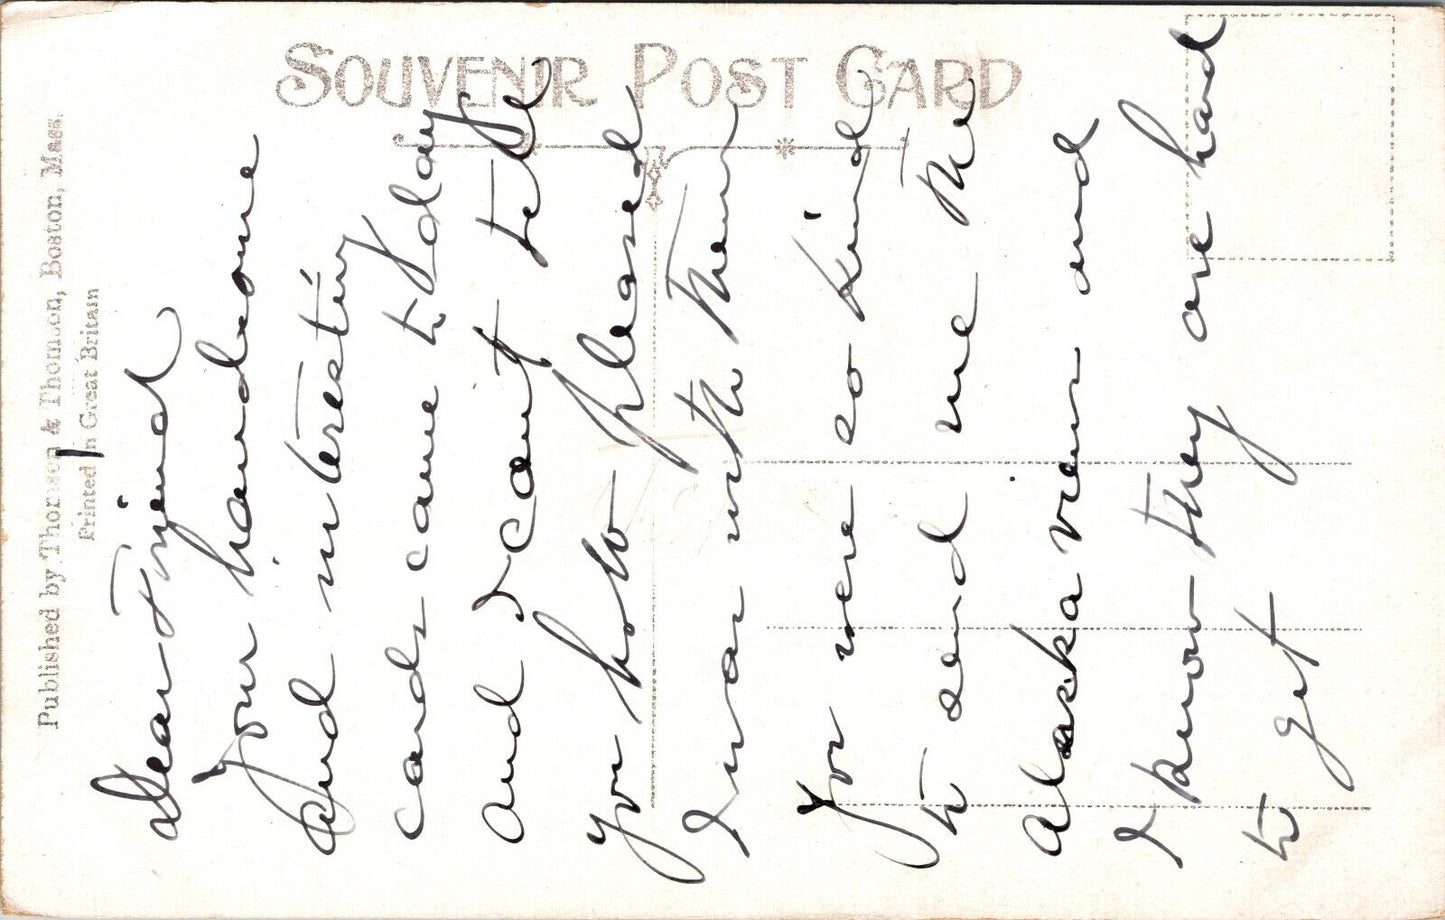 SOUVENIR POST CARD
Published by Thomson & Thomson, Boston, Mass.
Printed in Great Britain
Dear Friend
Your handsome
and interesting
cards came to day
and I can't tell
you how pleased
I was with them
You were so kind
to send me the
Alaska views and
I know they are hard
to get